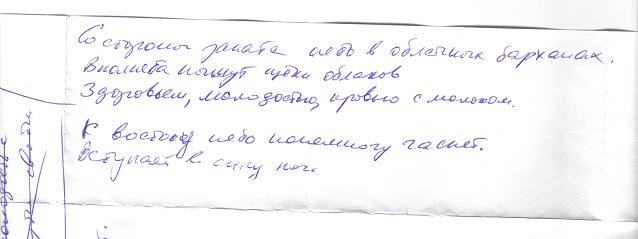 Со стороны заката небо в облачных барханах.
Вполнеба пышут щёки облаков
Здоровьем, молодостью, кровью с молоком.
К востоку небо понемногу гаснет.
Вступает в силу ночь